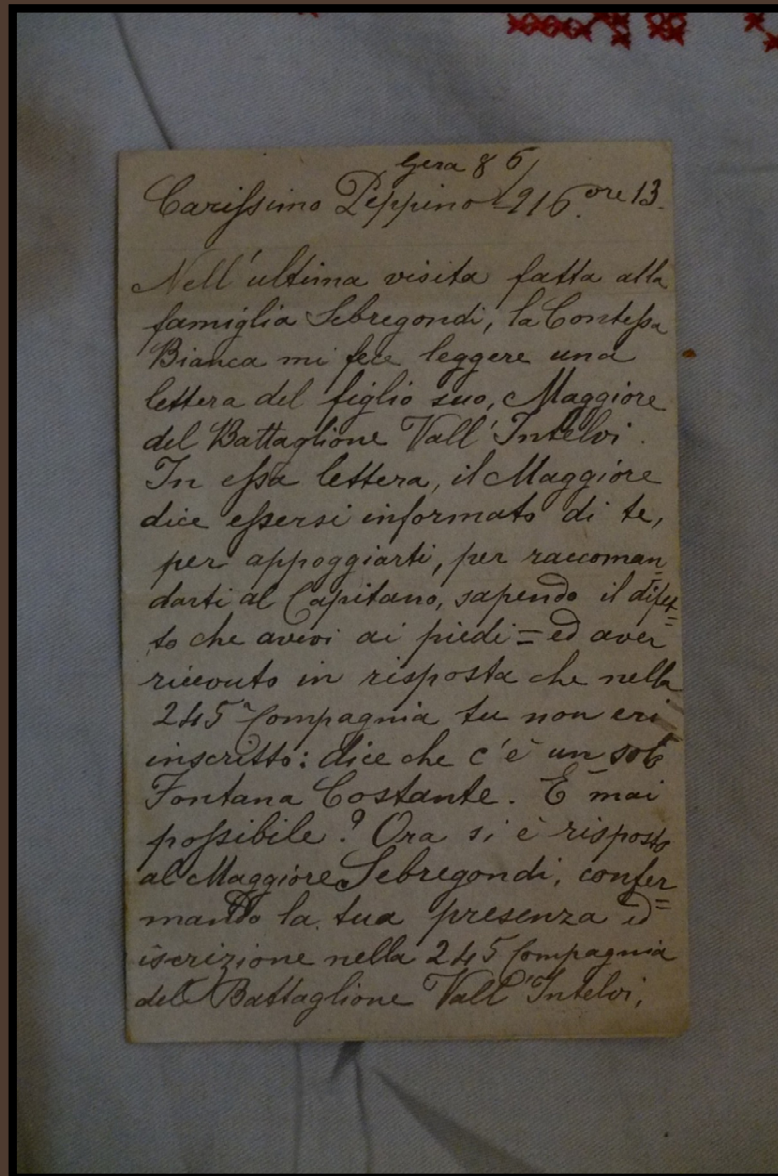 Gera 8 6/
Carissimo Peppino 916. ore 13.
Nell'ultima visita fatta alla
famiglia Sebregondi, la Contessa
Bianca mi fece leggere una
lettera del figlio suo, Maggiore
del Battaglione Vall'Intelvi.
In essa lettera, il Maggiore
dice essersi informato di te,
per appoggiarti, per raccoman=
darti al Capitano, sapendo il difet=
to che avevi ai piedi = ed aver
ricevuto in risposta che nella
245ª Compagnia tu non eri
inscritto: dice che c'è un solo
Fontana Costante. E mai
possibile? Ora si è risposto
al Maggiore Sebregondi, confer=
mando la tua presenza ed
iscrizione nella 245 Compagnia
del Battaglione Vall'Intelvi,